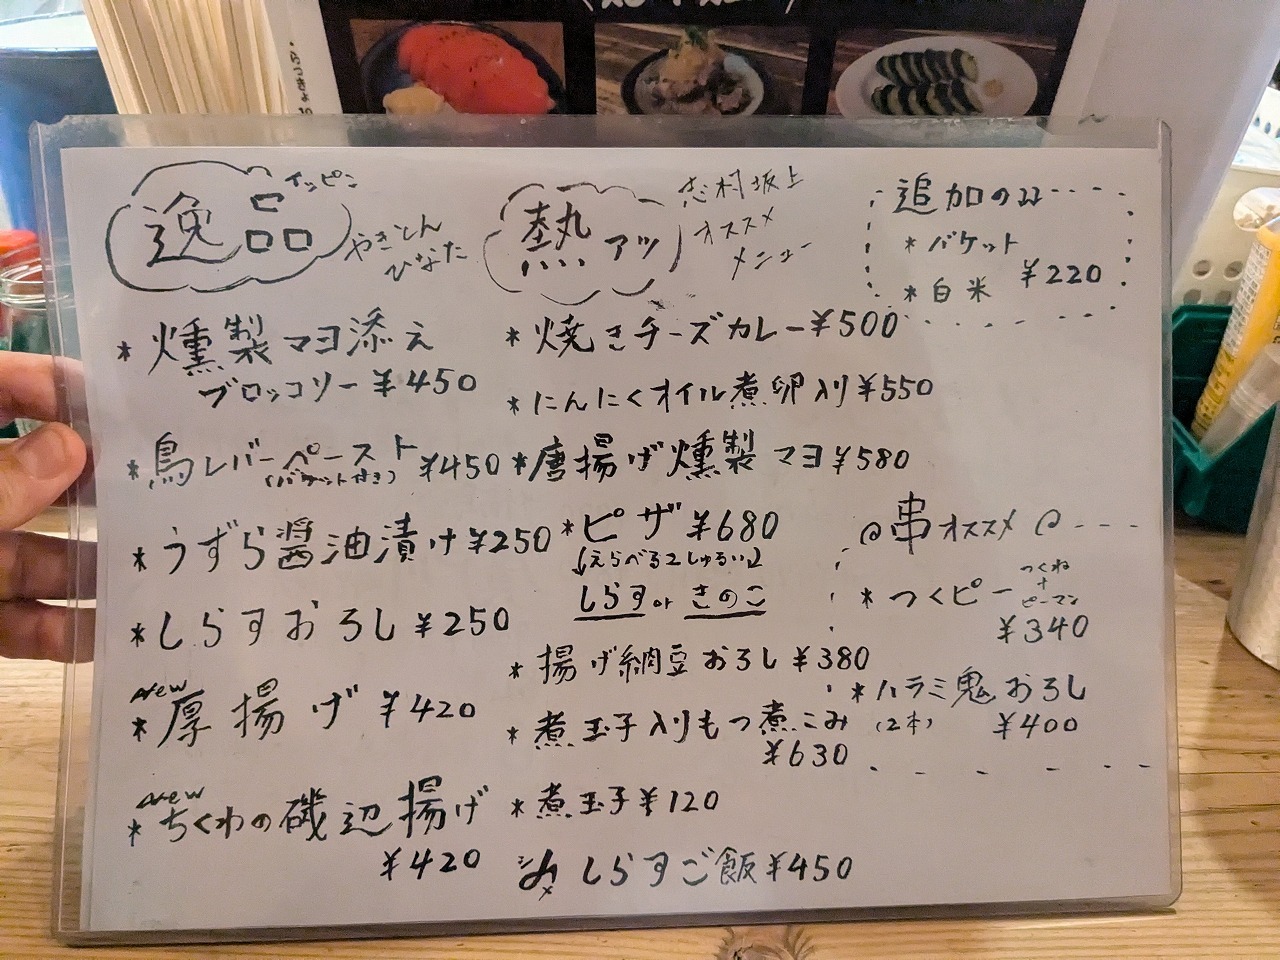 逸品 イッピン
やきとん
ひなた
* 燻製マヨ添え
ブロッコリー ¥450
* 鳥レバーペースト ¥450
(バゲット付き)
* うずら醤油漬け ¥250
* しらすおろし ¥250
New
* 厚揚げ ¥420
New
* ちくわの磯辺揚げ
¥420
熱 アツ
志村坂上
オススメ
メニュー
* 焼きチーズカレー ¥500
* にんにくオイル煮卵入り ¥550
* 唐揚げ燻製マヨ ¥580
* ピザ ¥680
(えらべる2しゅるい)
しらす or きのこ
* 揚げ納豆おろし ¥380
* 煮玉子入りもつ煮こみ
¥630
* 煮玉子 ¥120
〆 しらすご飯 ¥450
追加のみ
* バケット
* 白米 ¥220
串オススメ
* つくピー つくね
+
ピーマン
¥340
* ハラミ鬼おろし
(2本) ¥400